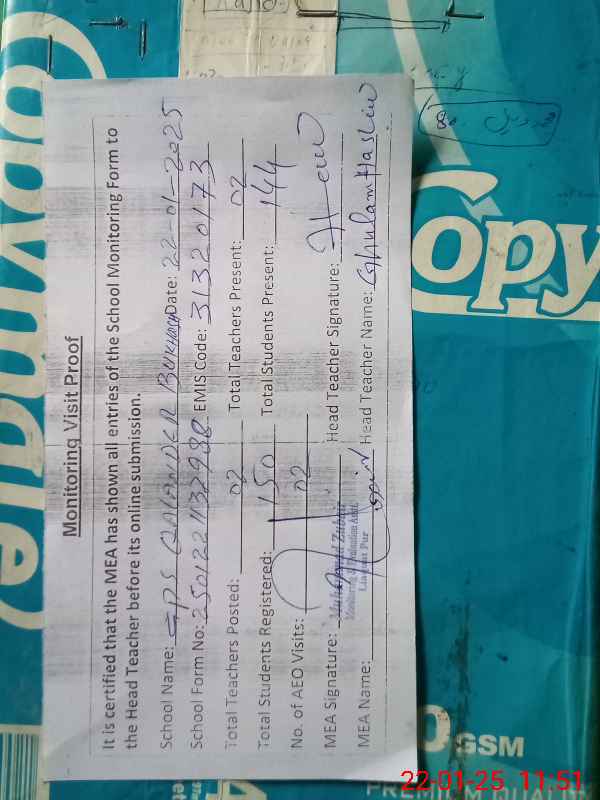 Monitoring Visit Proof
It is certified that the MEA has shown all entries of the School Monitoring Form to
the Head Teacher before its online submission.
School Name: GPS QALANDER BUKHARI Date: 22-01-2025
School Form No: EMIS Code: 31320173
Total Teachers Posted: 02 Total Teachers Present: 02
Total Students Registered: 150 Total Students Present: 144
No. of AEO Visits: 02
MEA Signature: Head Teacher Signature:
Muhammad Zubair
Monitoring & Evaluation Asstt.
Liaquat Pur
MEA Name: Head Teacher Name: Ghulam
Copy
GSM
PREMIUM QUALITY
22-01-25 11:51